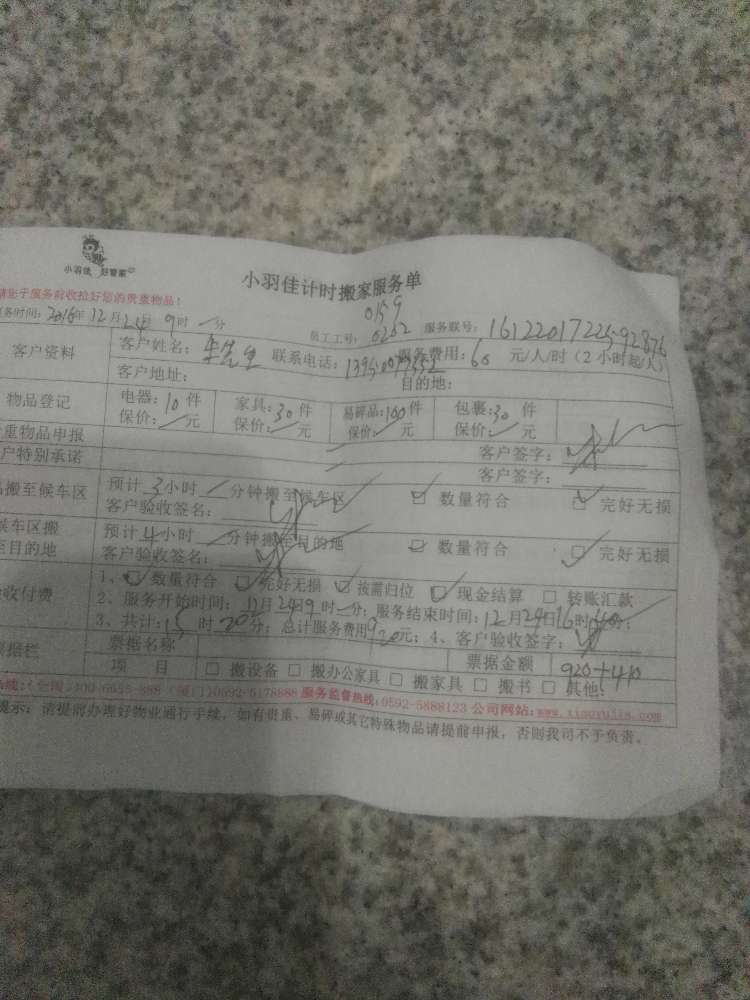 小羽佳 好管家
小羽佳计时搬家服务单
请您于服务前收拾好您的贵重物品!
服务时间: 2016年12月24日9时 分
0159
员工工号: 0262 服务联号: 16122017225492876
客户资料 客户姓名: 先生 联系电话: 服务费用: 60 元/人/时(2小时起/人)
客户地址: 目的地:
物品登记 电器: 10件 家具: 30件 易碎品: 100件 包裹: 30件
保价: 元 保价: 元 保价: 元 保价: 元
重物品申报 客户签字:
户特别承诺 客户签字:
品搬至候车区 预计3小时 分钟搬至候车区 数量符合 完好无损
客户验收签名:
候车区搬至目的地 预计4小时 分钟搬至目的地 数量符合 完好无损
客户验收签名:
验收付费 1、 数量符合 完好无损 按需归位 现金结算 转账汇款
2、服务开始时间: 月24日9时 分; 服务结束时间: 12月24日16时40分;
3、共计: 15时20分; 总计服务费用920元; 4、客户验收签字:
票据栏 票据名称 票据金额 920+410
项 目 搬设备 搬办公家具 搬家具 搬书 其他:
0592-5178888 服务监督热线: 0592-5888123 公司网站: www.xiaoyujia.com
提示: 请提前办理好物业通行手续, 如有贵重、易碎或其它特殊物品请提前申报, 否则我司不予负责。